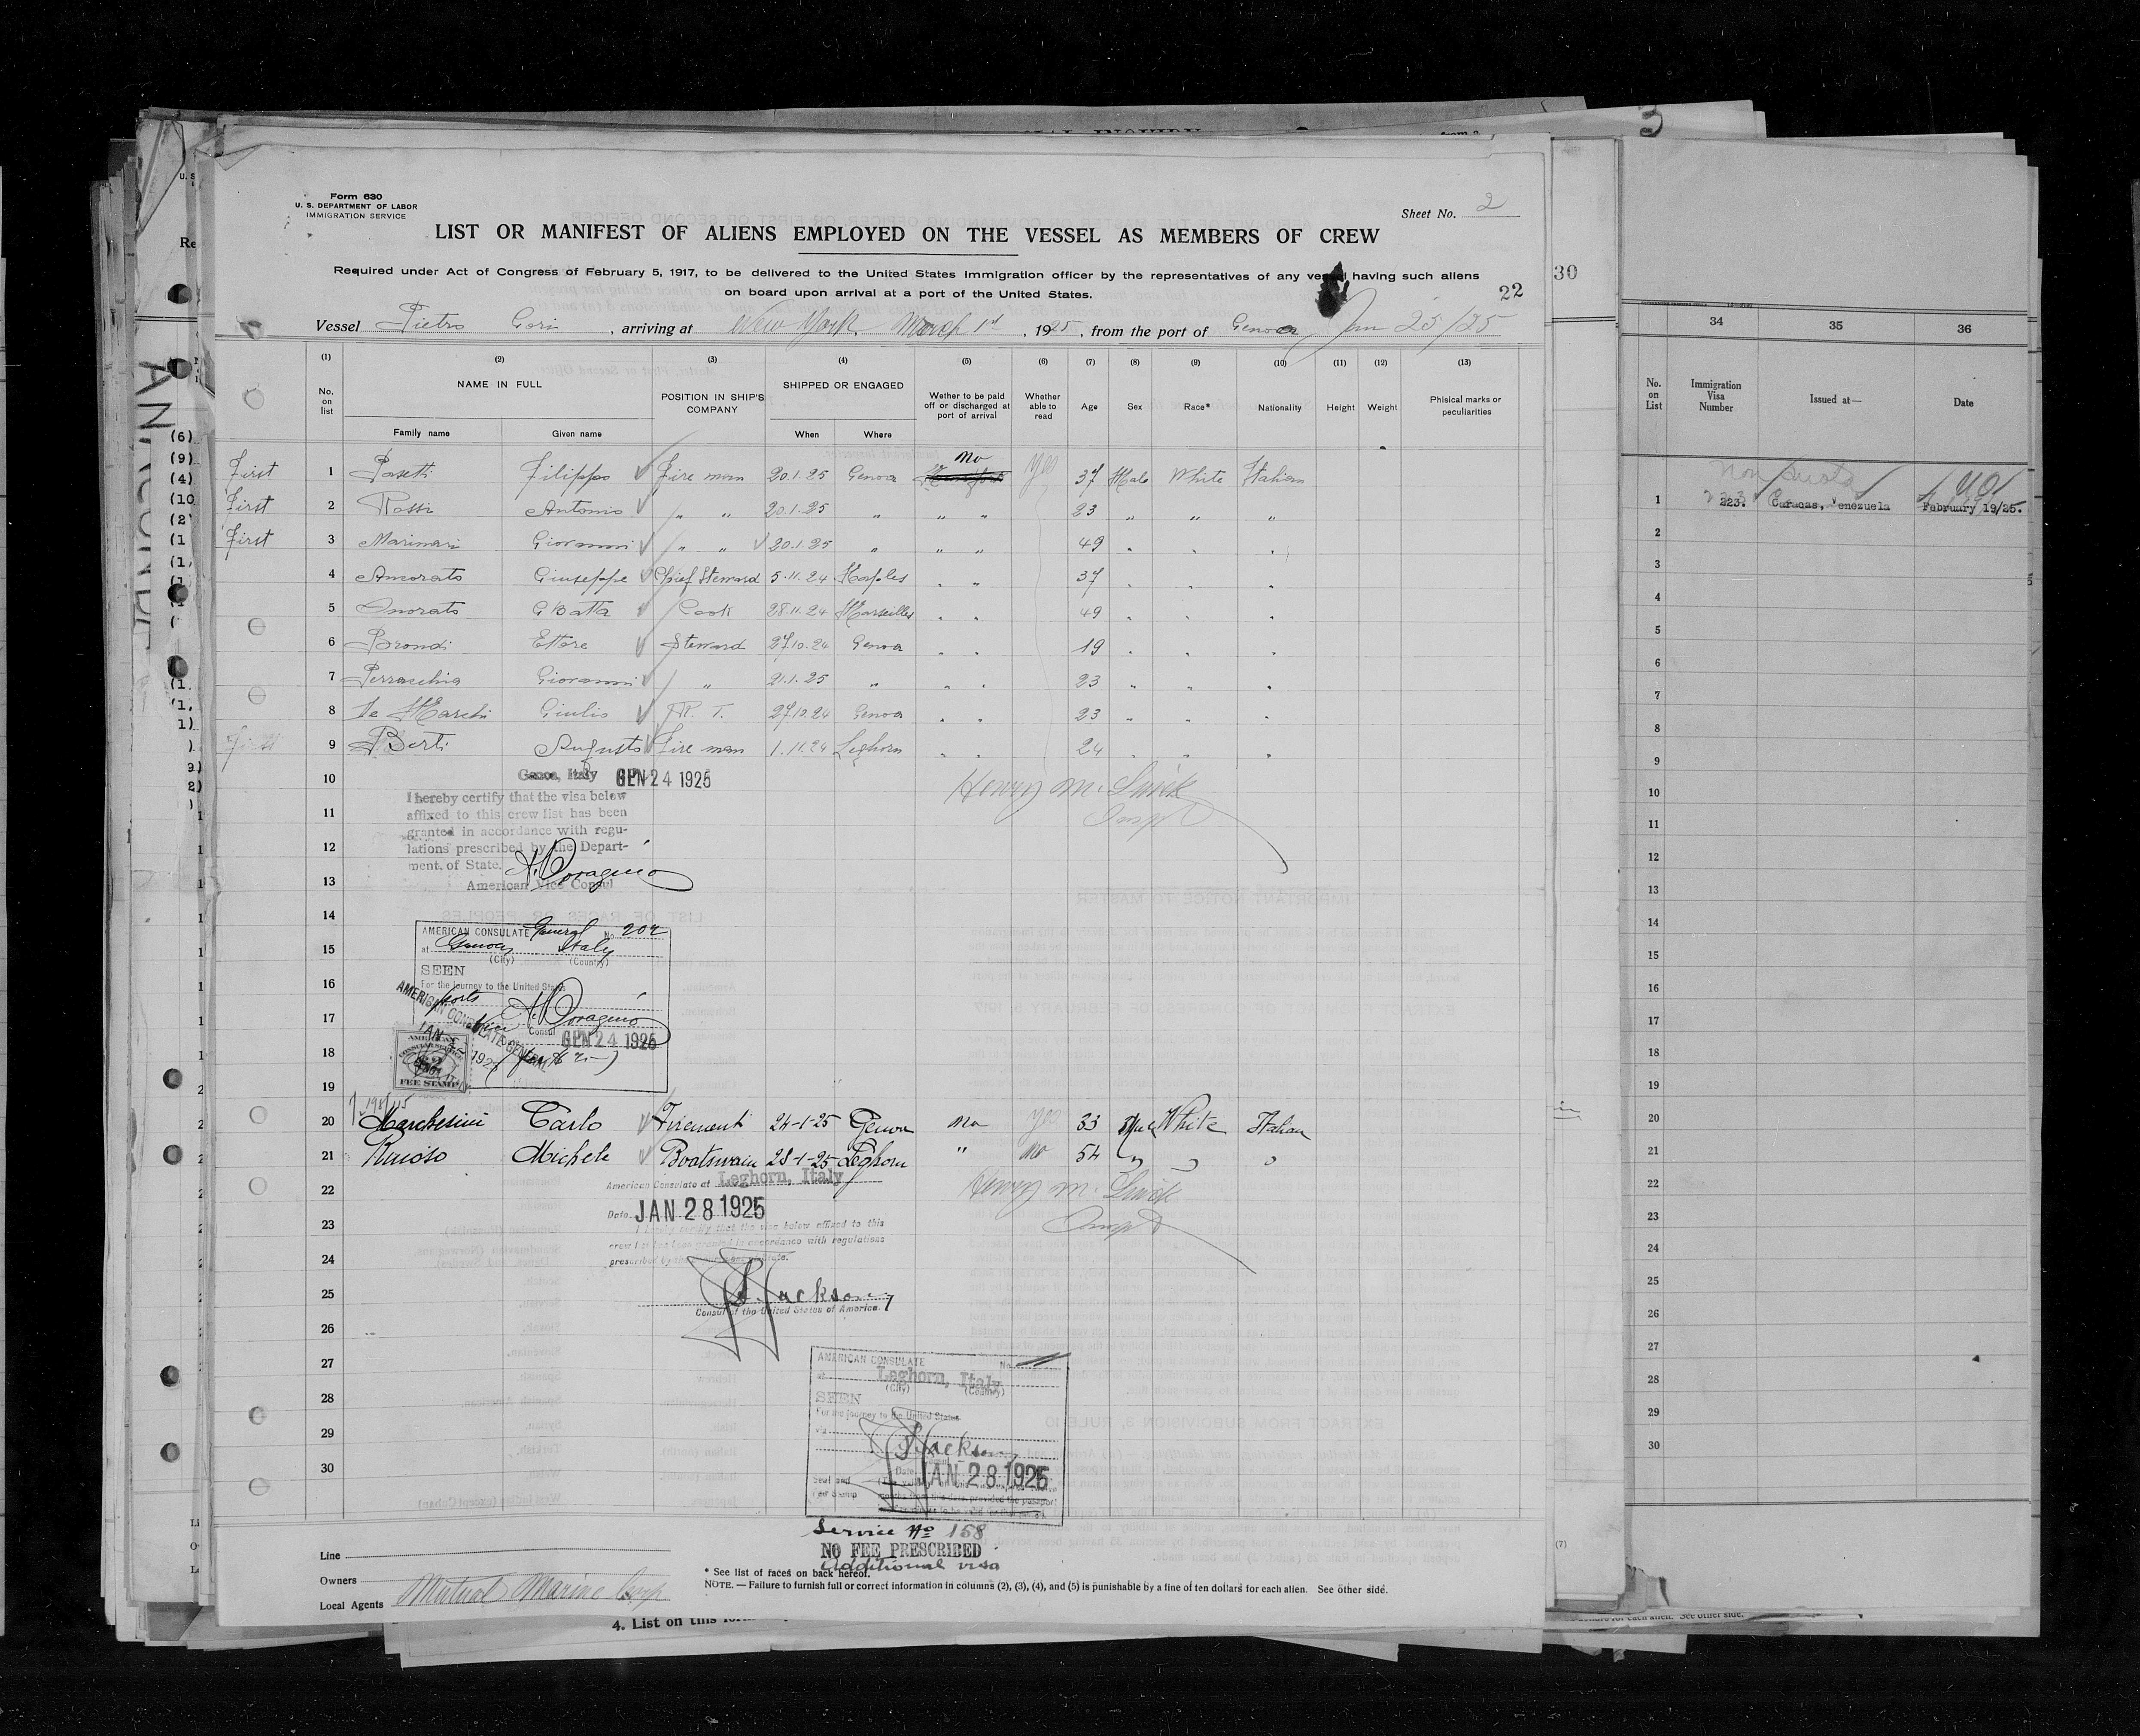 Form 630
U. S. DEPARTMENT OF LABOR
IMMIGRATION SERVICE
Sheet No. 2
LIST OR MANIFEST OF ALIENS EMPLOYED ON THE VESSEL AS MEMBERS OF CREW
Required under Act of Congress of February 5, 1917, to be delivered to the United States Immigration officer by the representatives of any vessel having such aliens
on board upon arrival at a port of the United States.
22
Vessel Pietro Gori, arriving at New York, March 1st, 1925, from the port of Genova Jan 25/25
(1) (2) (3) (4) (5) (6) (7) (8) (9) (10) (11) (12) (13)
No. on list NAME IN FULL POSITION IN SHIP'S COMPANY SHIPPED OR ENGAGED Wether to be paid off or discharged at port of arrival Whether able to read Age Sex Race* Nationality Height Weight Phisical marks or peculiarities
Family name Given name When Where
First 1 Filippo Fire man 20.1.25 Genova No Yes 37 Male White Italian
First 2 Rossi Antonio " " 20.1.25 " " " 23 " " "
First 3 Marinari Giovanni " " 20.1.25 " " " 49 " " "
4 Amorato Giuseppe Chief Steward 5.11.24 Naples " " 37 " " "
5 Onorato G Batta Cook 28.11.24 Marseilles " " 49 " " "
6 Brondi Ettore Steward 27.10.24 Genova " " 19 " " "
7 Giovanni " 21.1.25 " " " 23 " " "
8 De Marchi Giulio R. T. 27.10.24 Genova " " 23 " " "
First 9 Berti Augusto Fire man 1.11.24 Leghorn " " 24 " " "
10 Genoa, Italy GEN 24 1925
I hereby certify that the visa below
11 affixed to this crew list has been
granted in accordance with regu-
12 lations prescribed by the Depart-
ment of State.
13 American Vice Consul
14
AMERICAN CONSULATE General No. 204
15 at Genoa Italy
(City) (Country)
SEEN
16 For the journey to the United States
17 Vice Consul GEN 24 1925
AMERICAN CONSULATE GENERAL
18
AMERICAN CONSULAR SERVICE
FEE STAMP
19
20 Marchesini Carlo 24-1-25 Genoa No Yes 33 Male White Italian
21 Michele Boatswain 28-1-25 Leghorn " No 54 " " "
American Consulate at Leghorn, Italy
22
Date JAN 28 1925
23 I hereby certify that the visa below affixed to this
crew list has been granted in accordance with regulations
24 prescribed by the Department of State.
25 Jackson
Consul of the United States of America.
26
27
AMERICAN CONSULATE No.
at Leghorn, Italy
(City) (Country)
28 SEEN
For the journey to the United States
29 via
Jackson
30 Date JAN 28 1925
Seal and
Fee Stamp
Service No 158
NO FEE PRESCRIBED
Additional visa
Line
Owners
Local Agents Mutual Marine Corp
* See list of races on back hereof.
NOTE. — Failure to furnish full or correct information in columns (2), (3), (4), and (5) is punishable by a fine of ten dollars for each alien. See other side.
4. List on this form
30
34 35 36
No. on List Immigration Visa Number Issued at— Date
Non quota
1 223. Caracas, Venezuela February 19/25.
2
3
4
5
6
7
8
9
10
11
12
13
14
15
16
17
18
19
20
21
22
23
24
25
26
27
28
29
30